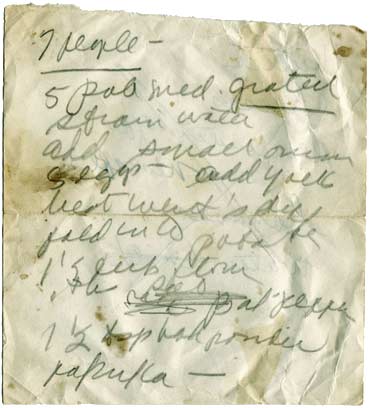 7 people –
5 pot med. grated
strain water
add small onion
3 eggs – add yolk
beat
fold into potato
1 ½ cup
salt pepper
1 ½ tsp powder
paprika –